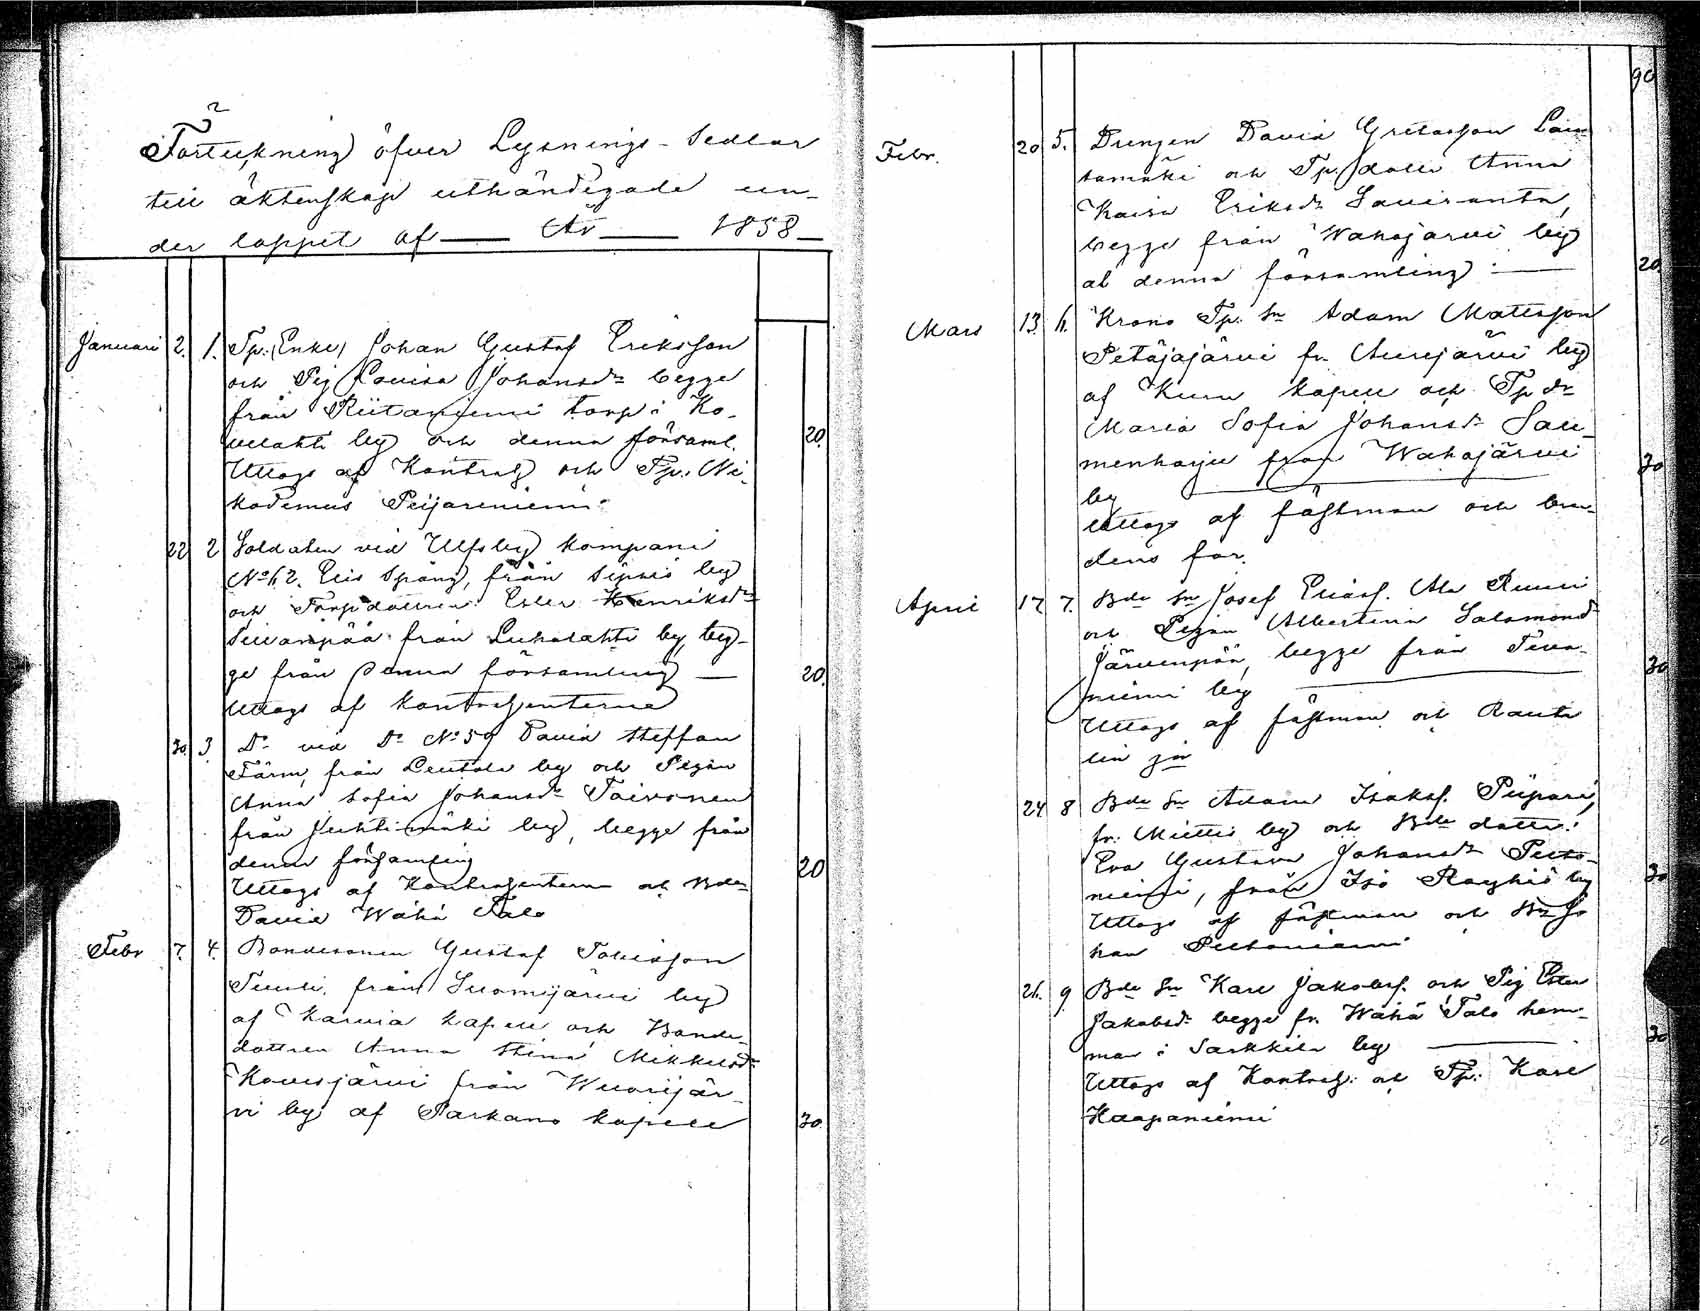 Förteckning öfver Lysnings-Sedlar
till äktenskap uthändigade un-
der loppet af — År — 1858 —
Januari 2. 1. Tp. (Enkl) Johan Gustaf Eriksson
och Pig Lovisa Johansdr begge
från Riitaniemi torp i Ko-
velahti by och denna församl. 20.
Uttogs af Kontrah och Tp. Ni-
kodemus Peijareniemi
22 2 Soldaten vid Ulfsby kompani
No 62. Elis Spång, från Sipsiö by
och Torpdottren Ester Henriksdr
från Luhalahti by, beg-
ge från denna församling — 20.
Uttogs af kontrahenterna
30. 3 Do vid Do No 59 David Steffan
Färm, från Leutola by och Pigan
Anna Sofia Johansdr Toivonen
från Juhtimäki by, begge från
denna församling 20
Uttogs af Kontrahenterna och Bde
David Wähä Talo
Febr 7. 4. Bondesonen Gustaf Tobiasson
Tuuli, från Suomijärvi by
af Karvia kapell och Bonde-
dottren Anna Stina Mikkelsdr
Kovesjärvi från Wuorijär-
vi by af Parkano kapell 30.
90
Febr. 20 5. Drengen David Gretasson Lau-
tamäki och Tp. dotter Anna
Kaisa Eriksdr Saviranta,
begge från Wahojärvi by
af denna församling — 20.
Mars 13 6. Krono Tp. Sn Adam Mattsson
Petäjäjärvi fr. Aurejärvi by
af Kuru kapell och Tp dr
Maria Sofia Johansdr Sau-
menharju från Wahojärvi 30
by
Uttogs af fästman och bru-
dens far.
April 17 7. Bde Sn Josef Eliasf. Ala Rumi
och Pigan Albertina Salamonsd
Järvenpää, begge från Teva- 30
niemi by —
Uttogs af fästman och Rauta
lin jr
24 8 Bde Sn Adam Isaksf. Piipari,
fr. Miettis by och Bde dotter
Eva Gustava Johansdr Pelto-
niemi, från Iso Röyhiö by 30
Uttogs af fästman och Bn Jo
han Peltoniemi
26. 9 Bde Sn Karl Jakobsf. och Pig Ester
Jakobsdr begge fr. Wähä Talo hem-
man i Sarkkila by — 30
Uttogs af Kontrah: och Tp: Karl
Haapaniemi